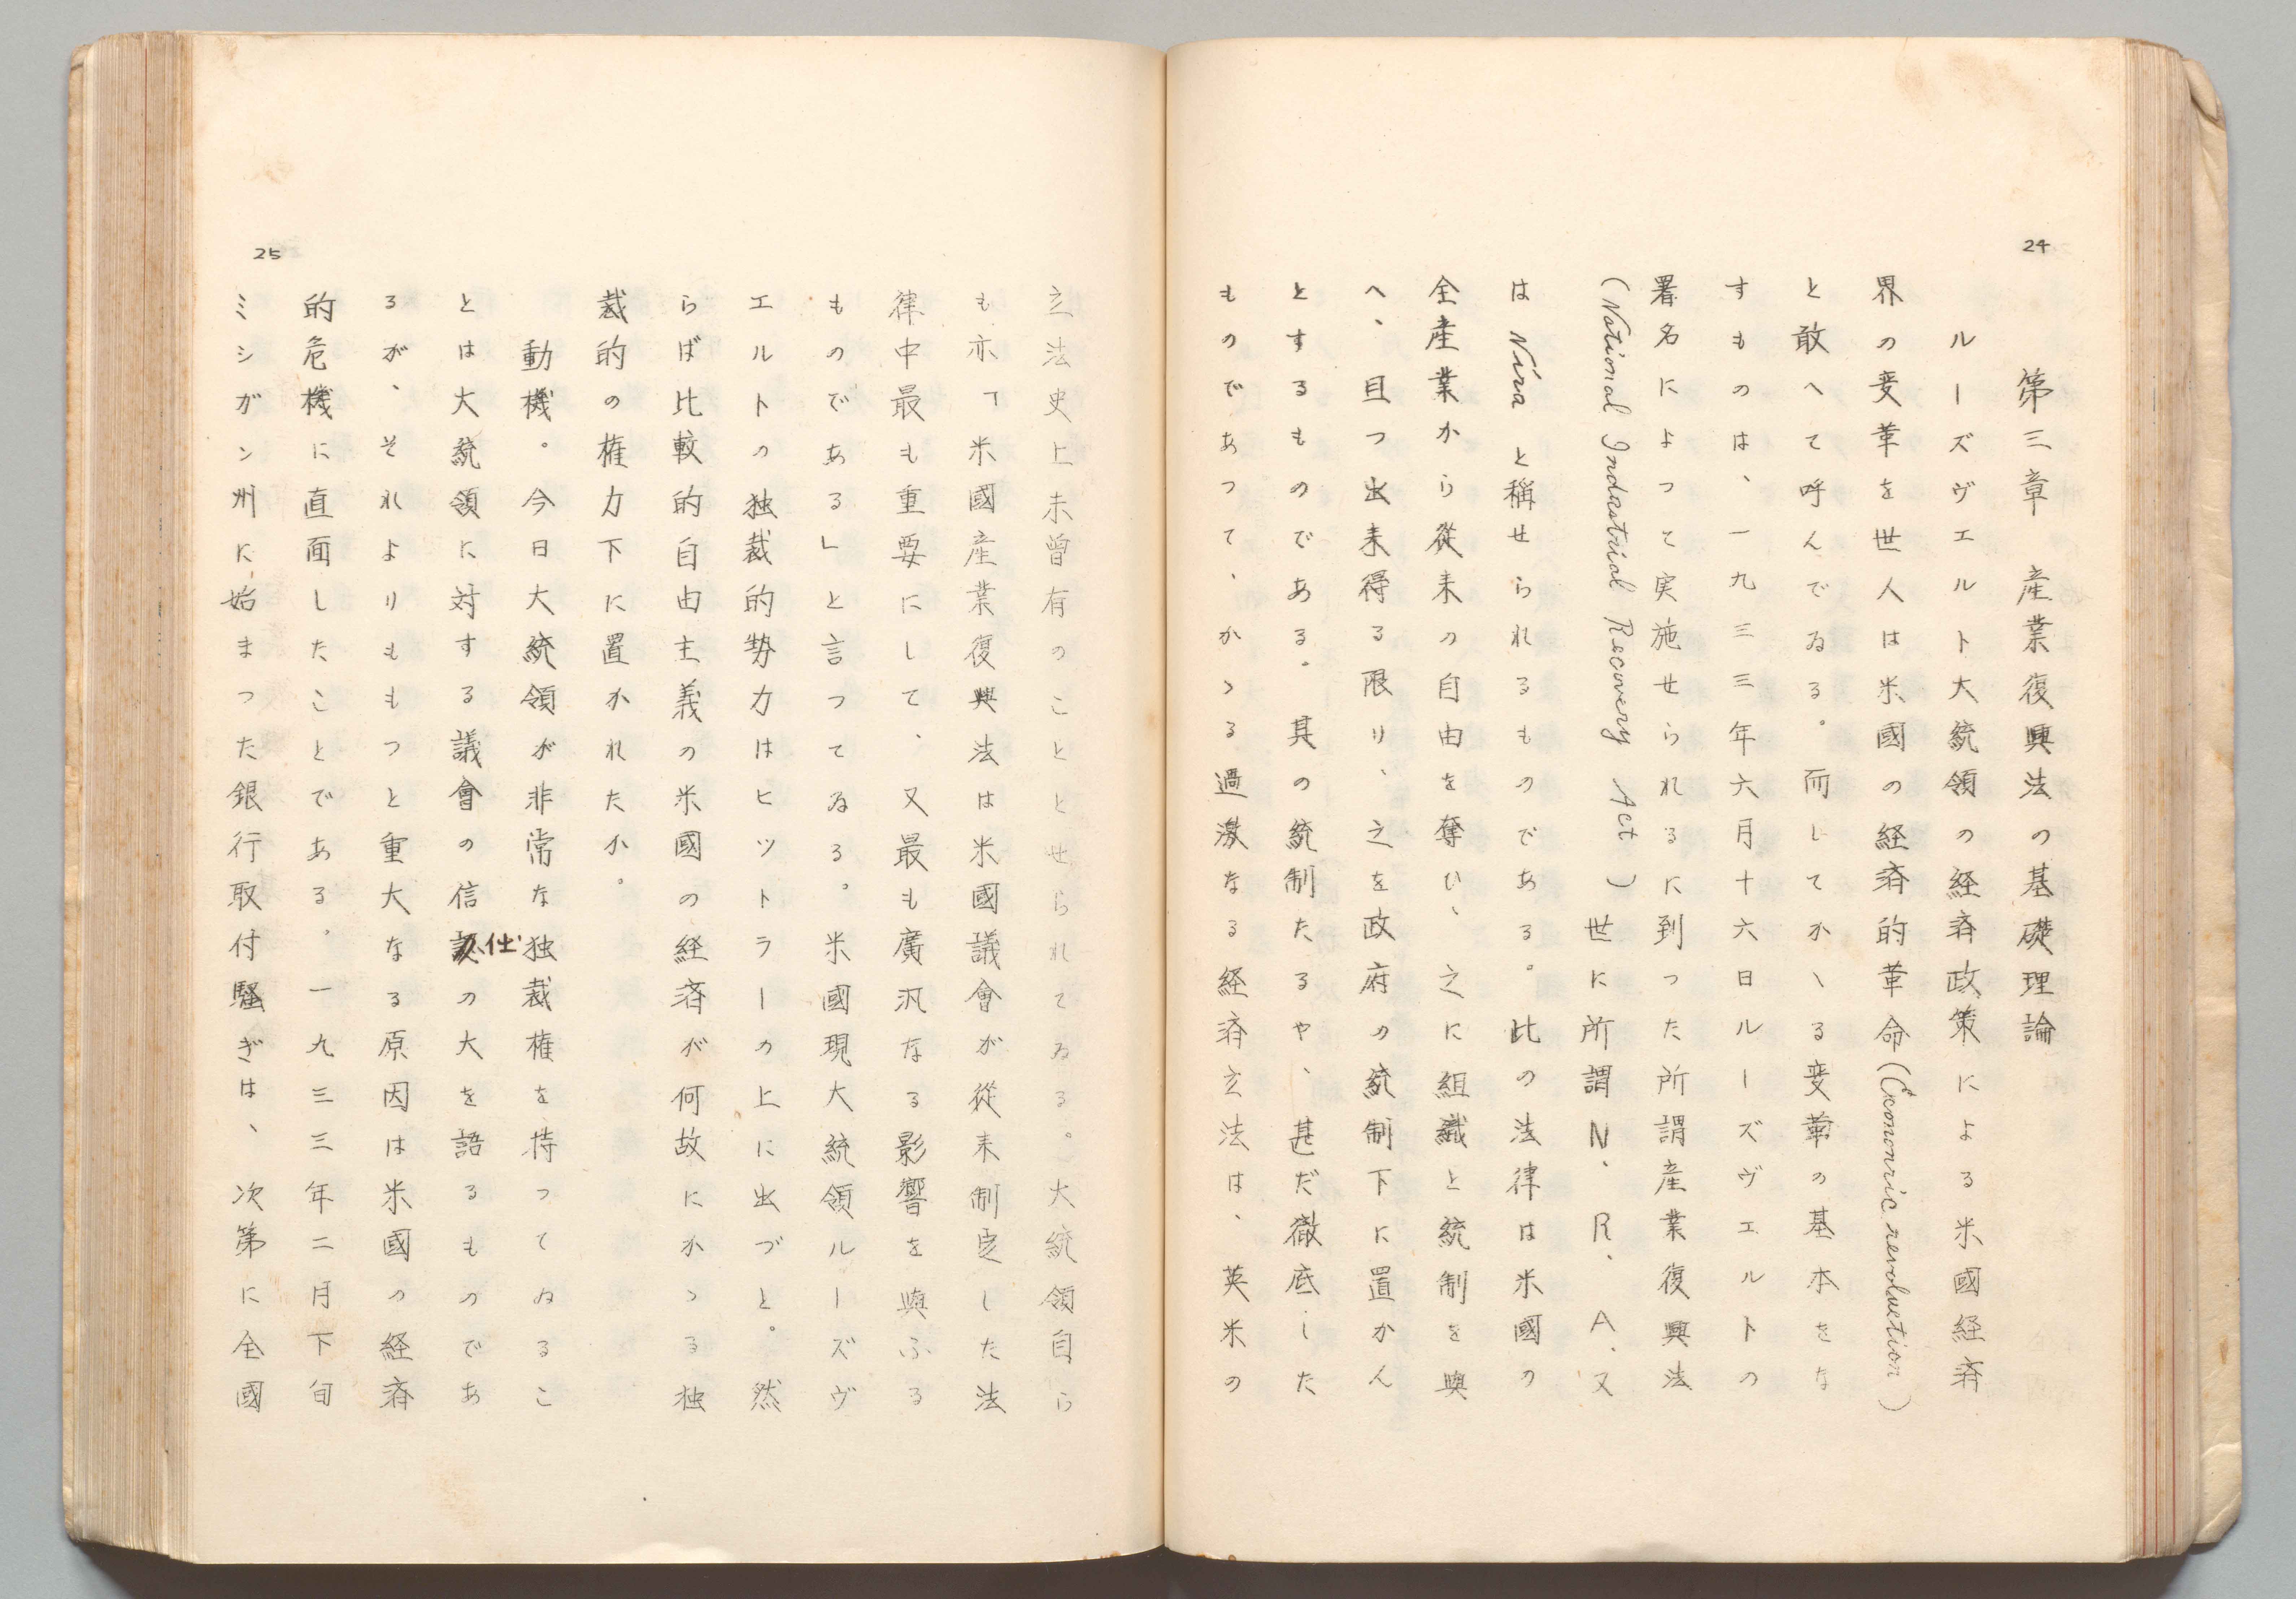 24
第三章　産業復興法の基礎理論
ルーズヴエルト大統領の経済政策による米國経済
界の変革を世人は米國の経済的革命(Economic revolution)
と敢へて呼んでゐる。而してかゝる変革の基本をな
すものは、一九三三年六月十六日ルーズヴエルトの
署名によつて実施せられるに到つた所謂産業復興法
(National Industrial Recovery Act)世に所謂N.R.A.又
はNiraと稱せられるものである。此の法律は米國の
全産業から從来の自由を奪ひ、之に組織と統制を與
へ、且つ出来得る限り、之を政府の統制下に置かん
とするものである。其の統制たるや、甚だ徹底した
ものであつて、かゝる過激なる経済立法は、英米の
25
立法史上未曾有のことゝせられてゐる。大統領自ら
も亦「米國産業復興法は米國議會が從来制定した法
律中最も重要にして、又最も廣汎なる影響を與ふる
ものである」と言つてゐる。米國現大統領ルーズヴ
エルトの独裁的勢力はヒツトラーの上に出づと。然
らば比較的自由主義の米國の経済が何故にかゝる独
裁的の権力下に置かれたか。
動機。今日大統領が非常な独裁権を持つてゐるこ
とは大統領に対する議會の信任の大を語るものであ
るが、それよりももつと重大なる原因は米國の経済
的危機に直面したことである。一九三三年二月下旬
ミシガン州に始まつた銀行取付騒ぎは、次第に全國